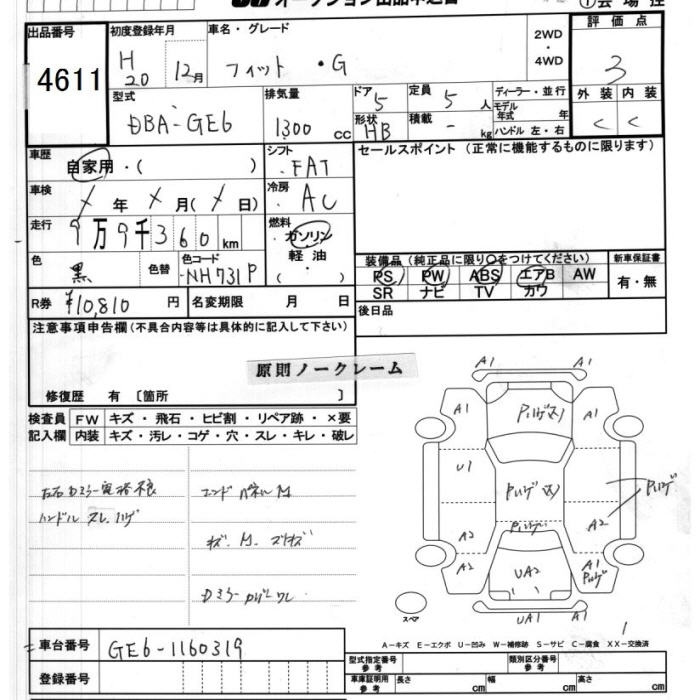 オークション出品申込書
①会場控
出品番号 4611
初度登録年月 H20 12月
車名・グレード フィット・G
2WD・4WD
評価点 3
型式 DBA-GE6
排気量 1300 cc
ドア 5
形状 HB
定員 5 人
積載 - kg
ディーラー・並行
モデル年式 年
ハンドル 左・右
外装 C 内装 C
車歴 自家用・( )
シフト FAT
セールスポイント (正常に機能するものに限ります)
車検 年 月( 日)
冷房 AC
走行 9万9千360km
燃料 ガソリン・軽油・( )
色 黒 色替 色コード NH731P
装備品 (純正品に限り○をつけてください)
新車保証書
PS PW ABS エアB AW
SR ナビ TV カワ
有・無
R券 ¥10,810 円 名変期限 月 日
後日品
注意事項申告欄(不具合内容等は具体的に記入して下さい)
原則ノークレーム
修復歴 有 〔箇所 〕
検査員記入欄
FW キズ・飛石・ヒビ割・リペア跡・×要
内装 キズ・汚レ・コゲ・穴・スレ・キレ・破レ
左右ドミラー電格不良
ハンドル スレ、ハゲ
エンドパネルM
キズ、M、スリキズ
Dミラー カバーワレ
A1 A1
A1 A1
U1
A2 A2
A2 A1
UA2
UA1
スペア
1
A-キズ E-エクボ U-凹み W-補修跡 S-サビ C-腐食 XX-交換済
車台番号 GE6-1160319
登録番号
型式指定番号 参考
類別区分番号 参考
車庫証明用 参考 長さ cm 幅 cm 高さ cm